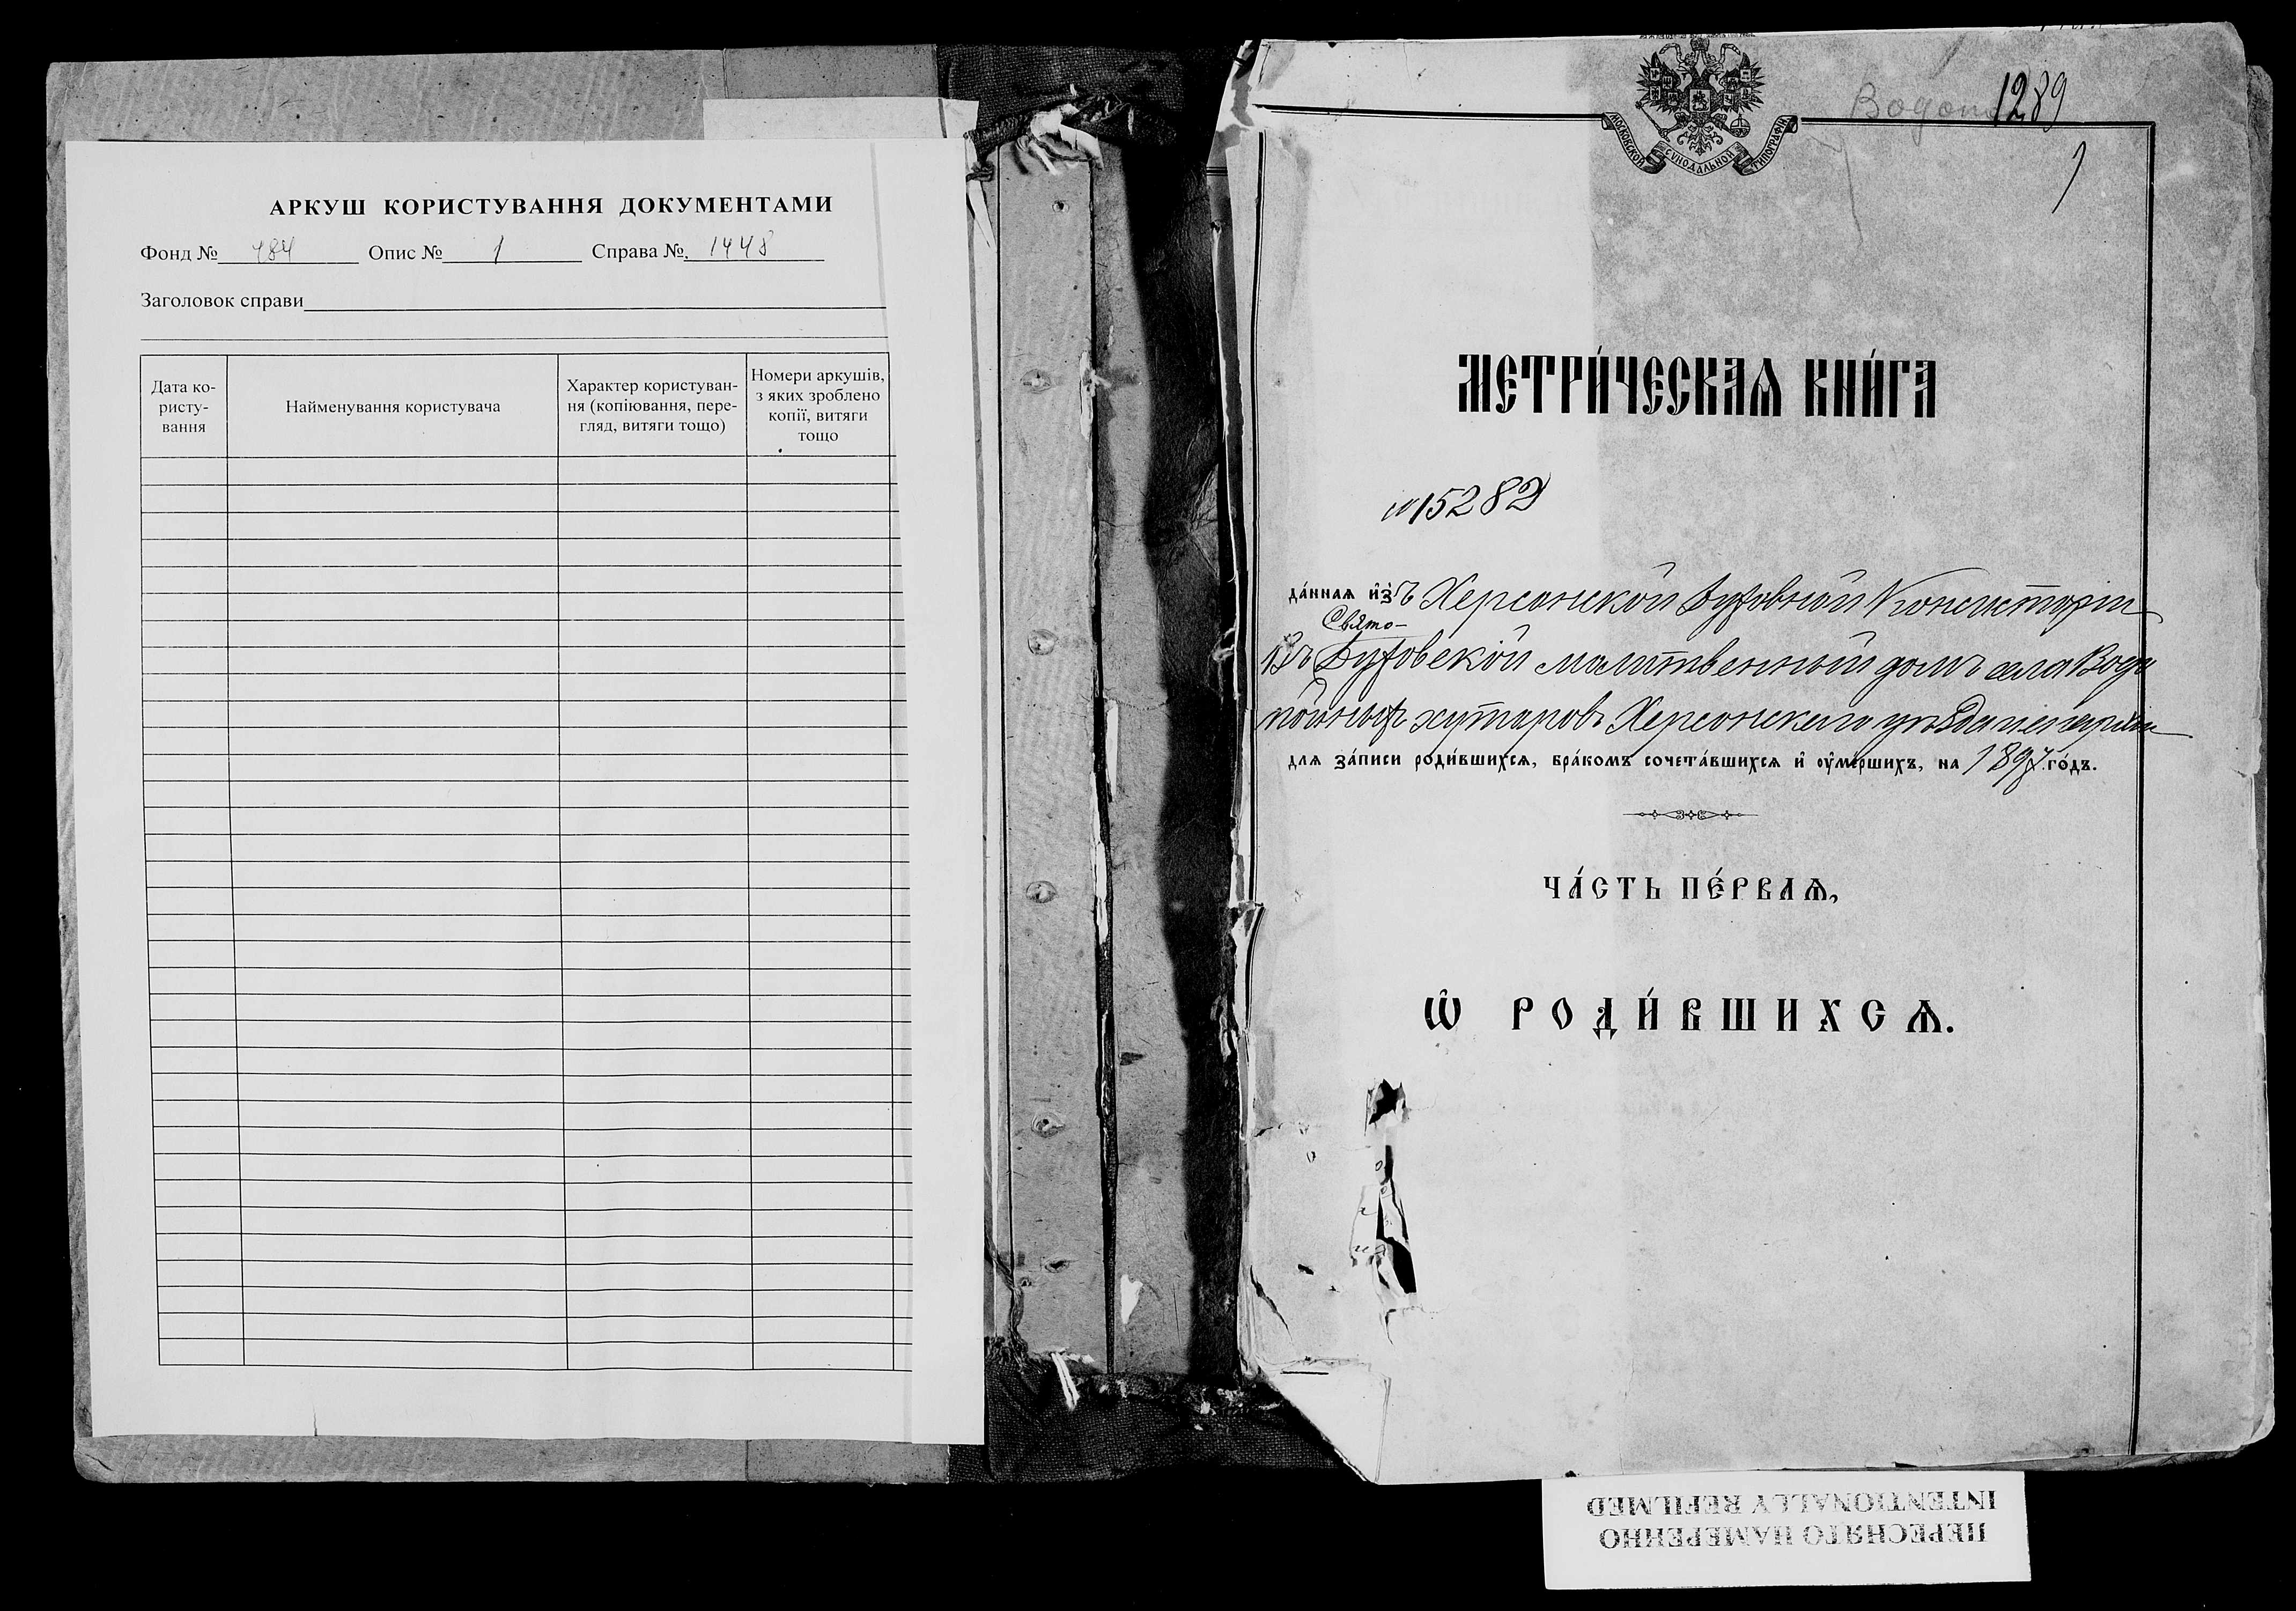 АРКУШ КОРИСТУВАННЯ ДОКУМЕНТАМИ
Фонд № 484 Опис № 1 Справа № 1448
Заголовок справи
Дата ко-
ристу-
вання
Найменування користувача
Характер користуван-
ня (копіювання, пере-
гляд, витяги тощо)
Номери аркушів,
з яких зроблено
копії, витяги
тощо
1289
1
МОСКОВСКОЙ СѴНОДАЛЬНОЙ ТИПОГРАФІИ
МЕТРИ́ЧЕСКАѦ КНИ́ГА
№ 15282
да́ннаѧ и҆з̾ъ Херсонской Духовной Консисторіи
Свято-
Въ Духовской молитвенный домъ села Водо
пойныхъ хуторовъ Херсонскаго уѣзда
для за́писи роди́вшихсѧ, бра́комъ сочета́вшихсѧ и҆ ᲂу҆ме́ршихъ, на 1897 го́дъ.
ЧА́СТЬ ПЕ́РВАѦ,
Ѡ҆ РОДИ́ВШИХСѦ.
ПЕРЕСНЯТО НАМЕРЕННО
INTENTIONALLY REFILMED